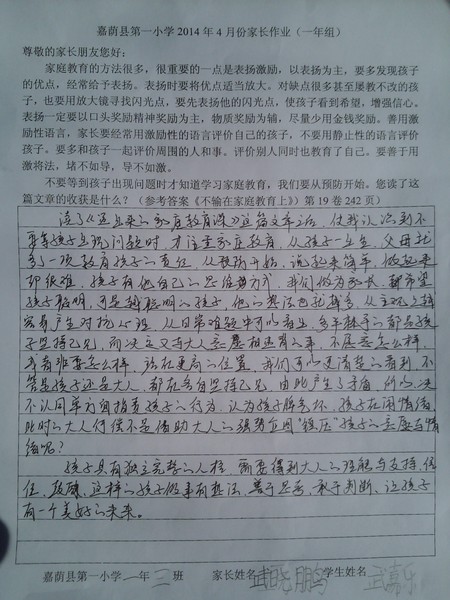 嘉荫县第一小学2014年4月份家长作业（一年组）
尊敬的家长朋友您好：
家庭教育的方法很多，很重要的一点是表扬激励，以表扬为主，要多发现孩子
的优点，经常给予表扬。表扬时要将优点适当放大。对缺点很多甚至屡教不改的孩
子，也要用放大镜寻找闪光点，要先表扬他的闪光点，使孩子看到希望，增强信心。
表扬一定要以口头奖励精神奖励为主，物质奖励为辅，尽量少用金钱奖励。善用激
励性语言，家长要经常用激励性的语言评价自己的孩子，不要用静止性的语言评价
孩子。要多和孩子一起评价周围的人和事。评价别人同时也教育了自己。要善于用
激将法，堵不如导，导不如激。
不要等到孩子出现问题时才知道学习家庭教育，我们要从预防开始。您读了这
篇文章的收获是什么？（参考答案《不输在家庭教育上》）第19卷242页）
读了《 家庭教育课》这篇文章后，使我认识到不
要等孩子出现问题时才注重家庭教育，从孩子一出生，父母就
多一项教育孩子的责任，从预防开始，说起来简单，做起来
却很难，孩子有他自己的思维方式，我们做为家长，都希望
孩子聪明，可是越聪明的孩子，他的想法也就越多，从主观上越
容易产生对抗心理，从日常难题中可以看出，多半棘手的都是孩
子坚持己见，而决定又与大人意愿相违背的事，不愿意怎么样，
或者非要怎么样，站在更高的位置，我们可以更清楚的看到，不
管是孩子还是大人，都在各自坚持己见，由此产生了矛盾，所以，决
不认同单方面指责孩子的行为，认为孩子脾气坏，孩子在闹情绪，
此时的大人何偿不是借助大人的强势在图“镇压”孩子的意愿与情
绪呢？
孩子具有独立完整的人格，需要得到大人的理解与支持，信
任，鼓励，这样的孩子做事有想法，善于思考，敢于判断，让孩子
有一个美好的未来。
嘉荫县第一小学一年三班 家长姓名 武晓鹏 学生姓名 武嘉乐